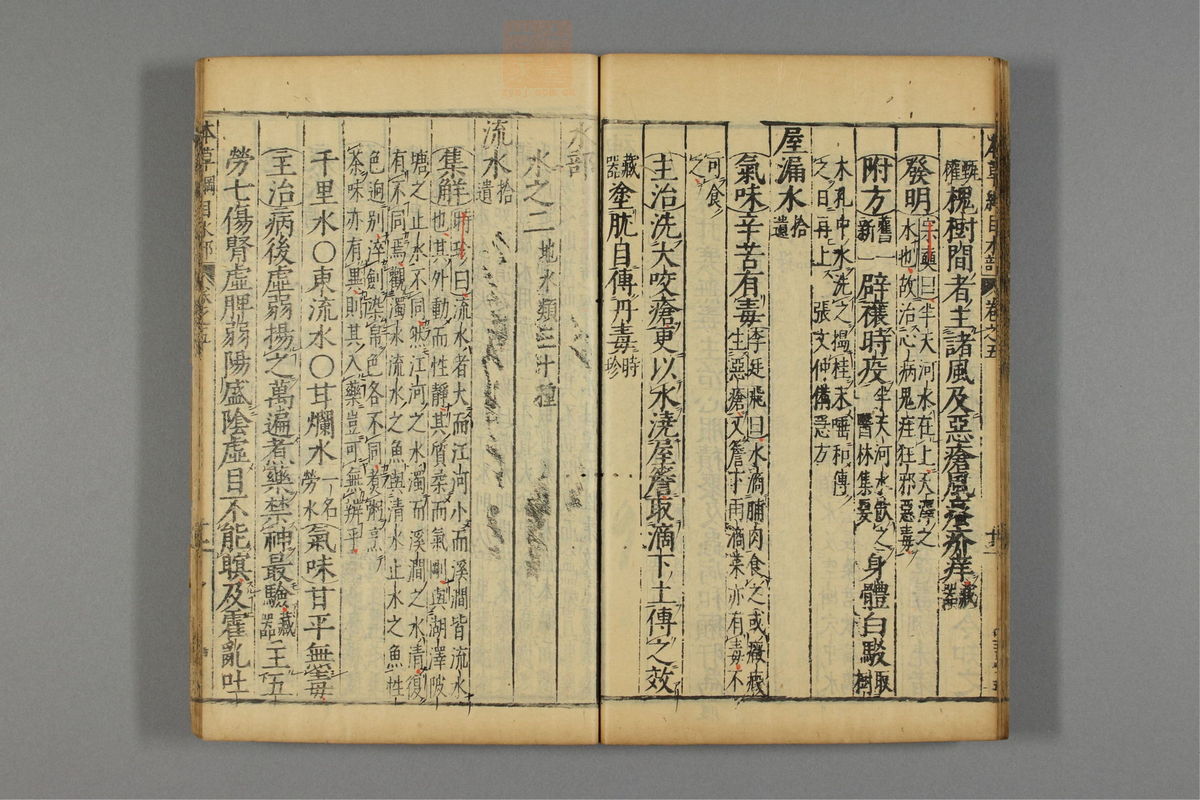 本草綱目水部 卷之五
槐樹間者主諸風及惡瘡風瘙疥痒藏器
發明宗奭曰半天河水在上天澤之
水也故治心病鬼疰狂邪惡毒
附方舊一新一辟禳時疫半天河水飲之醫林集要身體白駁取樹
木孔中水洗之搗桂末唾和傅
之日再上張文仲備急方
屋漏水拾遺
氣味辛苦有毒李廷飛曰水滴脯肉食之成癥瘕
生惡瘡又簷下雨滴菜亦有毒不
可食
之
主治洗犬咬瘡更以水澆屋簷取滴下土傅之效
藏器塗肬目傅丹毒時珍
水部
水之二地水類三十種
流水拾遺
集解時珍曰流水者大而江河小而溪澗皆流水
也其外動而性靜其質柔而氣剛與湖澤陂
塘之止水不同然江河之水濁而溪澗之水清復
有不同焉觀濁水流水之魚與清水止水之魚性
色迥別淬劍染帛色各不同煮粥烹
茶味亦有異則其入藥豈可無辨乎
千里水〇東流水〇甘爛水一名勞水氣味甘平無毒
主治病後虛弱揚之萬遍煮藥禁神最驗藏器主五
勞七傷腎虛脾弱陽盛陰虛目不能瞑及霍亂吐
本草綱目水部 卷之五